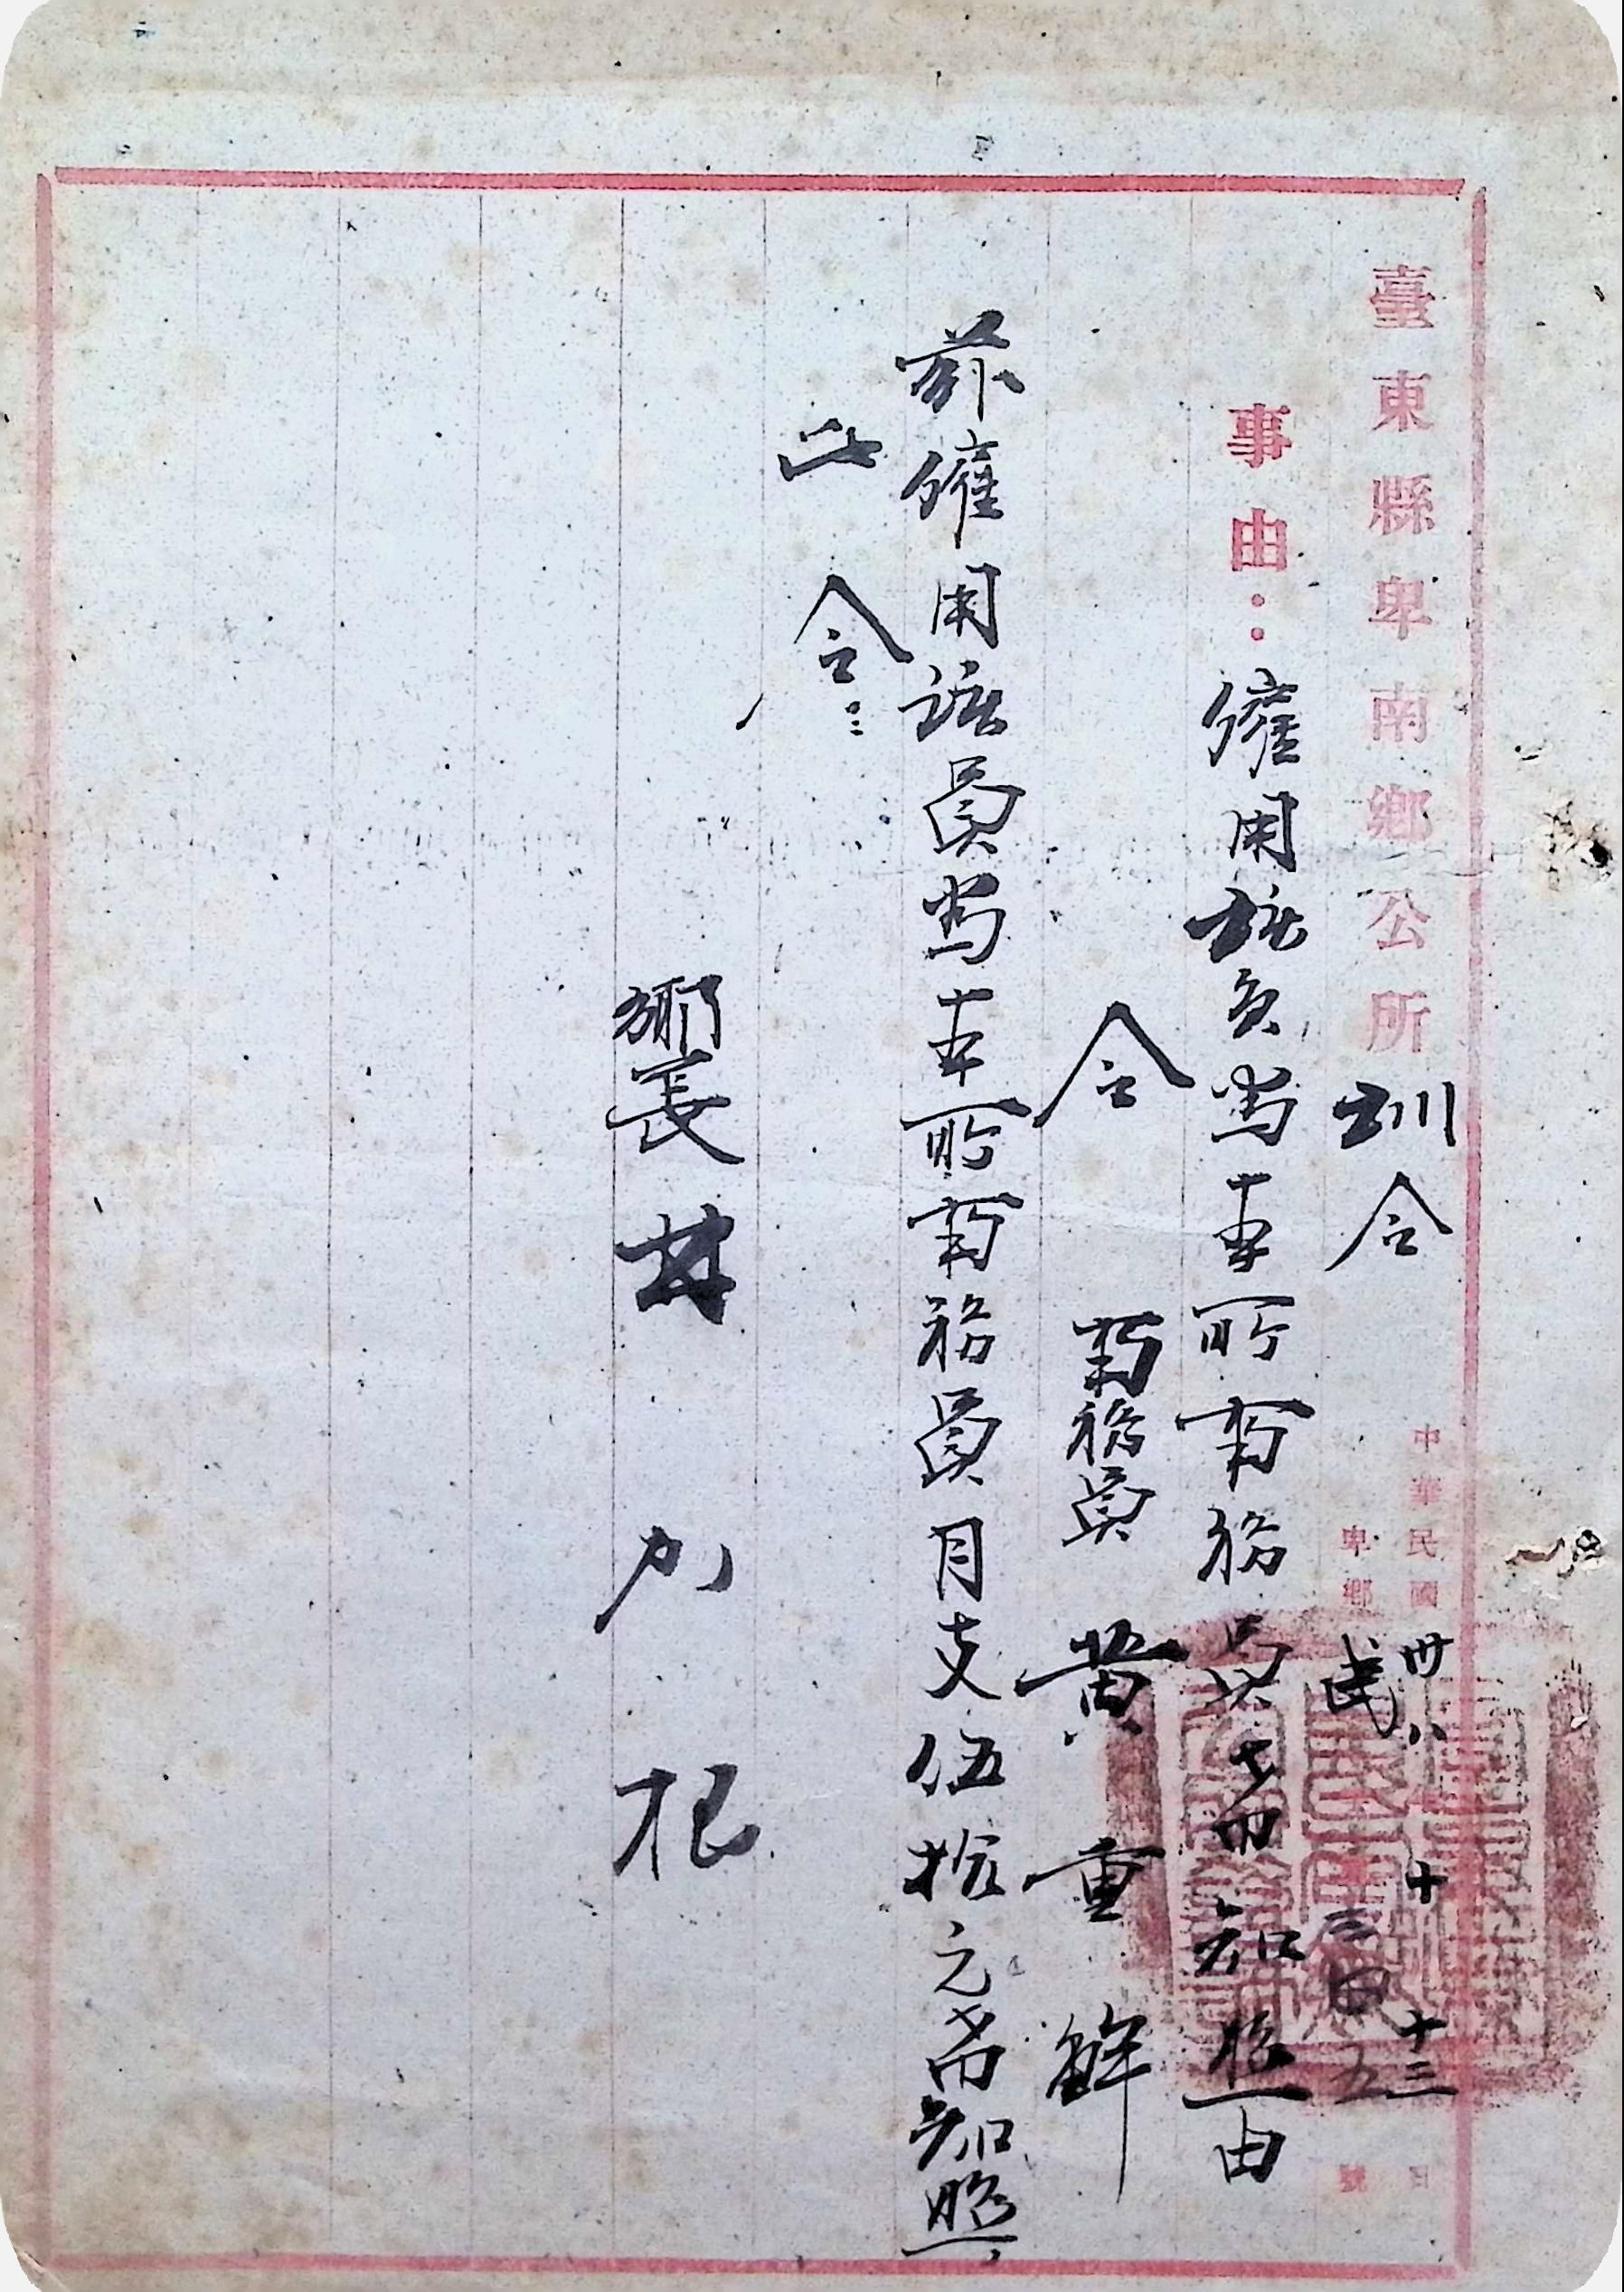 臺東縣卑南鄉公所訓令
中華民國卅八年十月十三日
卑鄉民字第三四五號
事由:僱用該員為本所事務員希知照由
令 事務員 黃重鮮
茲僱用該員為本所事務員月支伍拾元希知照
此令…
鄉長 林加根